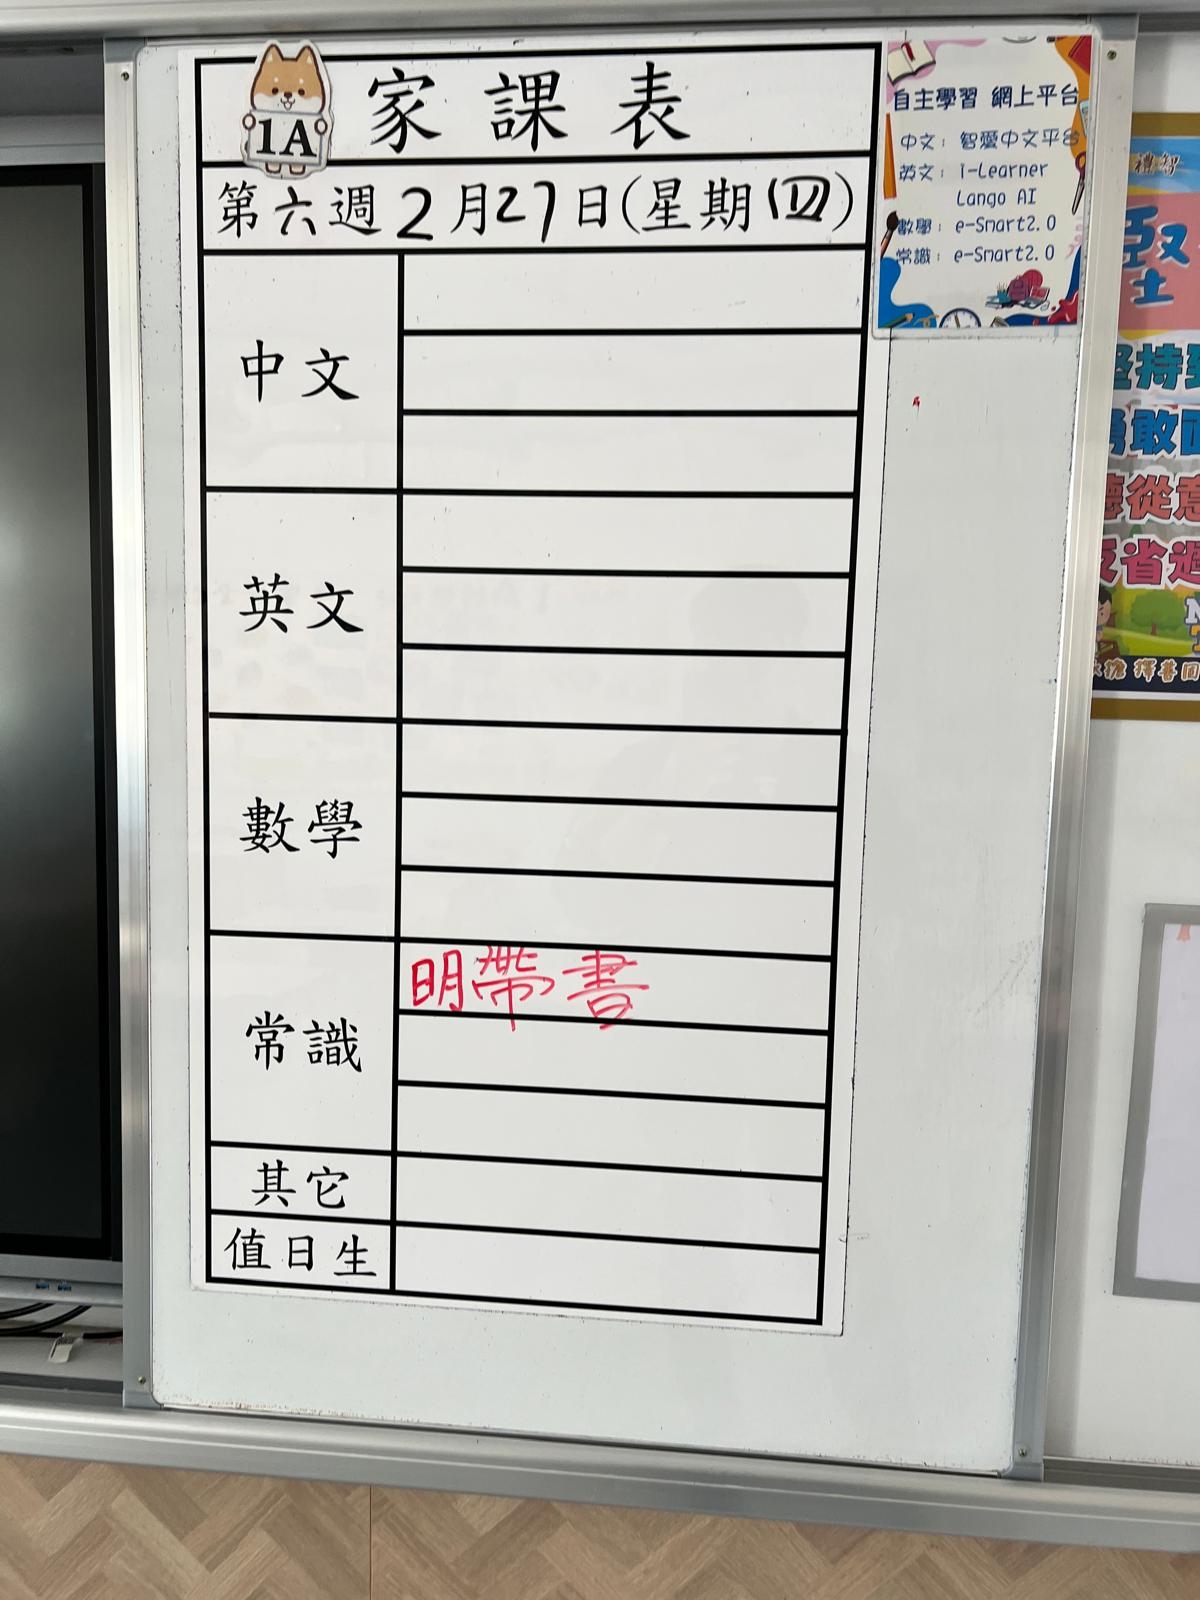 1A
家課表
第六週2月27日(星期四)
中文
英文
數學
常識
明帶書
其它
值日生
自主學習 網上平台
中文: 智愛中文平台
英文: i-Learner
Lango AI
數學: e-Smart2.0
常識: e-Smart2.0
禮智
堅
堅持
勇敢
聽從意
反省週
擇善